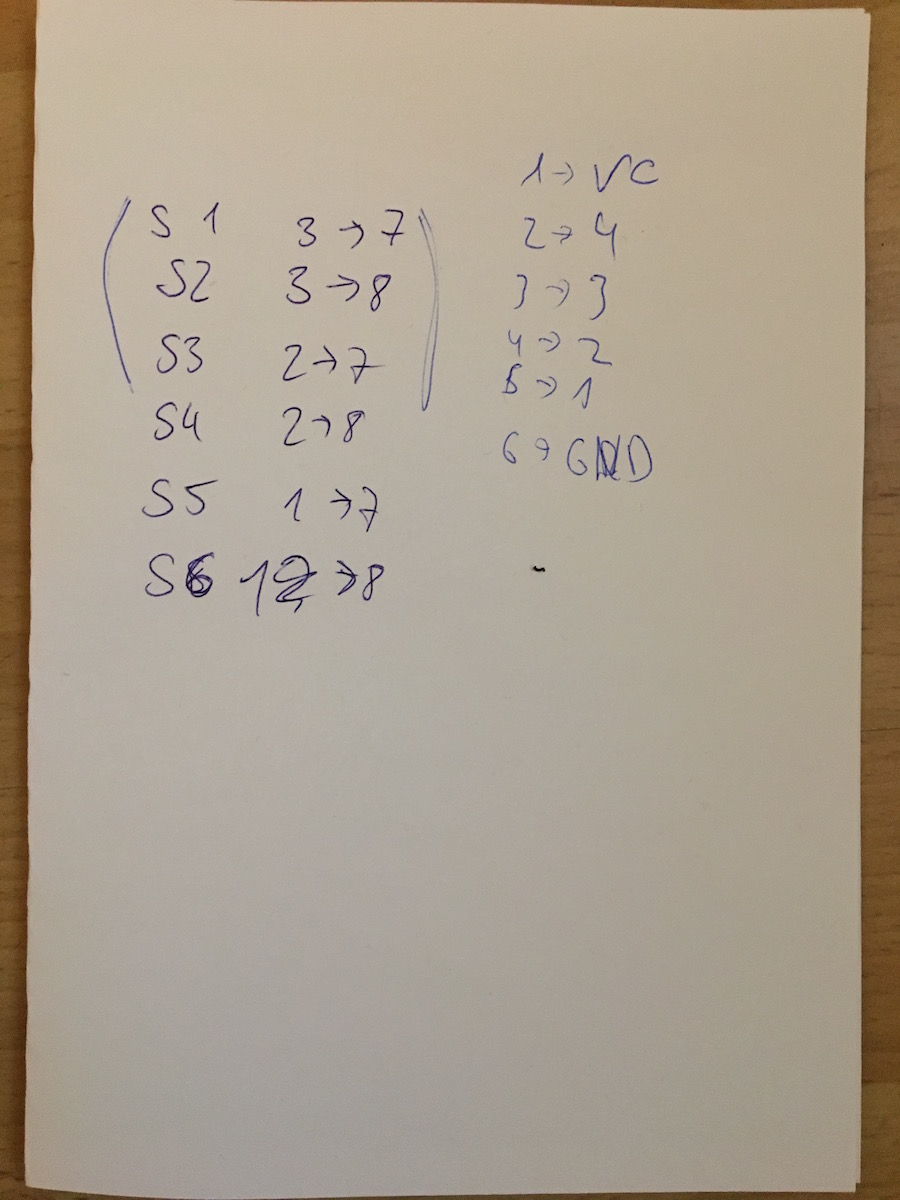 S 1 3 → 7
S2 3 → 8
S3 2 → 7
S4 2 → 8
S5 1 → 7
S6 1 → 8
1 → VC
2 → 4
3 → 3
4 → 2
5 → 1
6 → GND